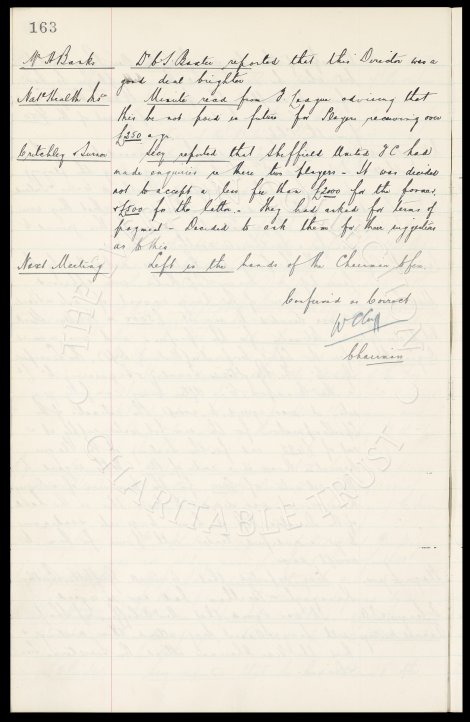 163
Mr A Banks Dr C S Baxter reported that this Director was a
good deal brighter
Natl Health Ins Minute read from F. League advising that
this be not paid in future for Players receiving over
£250 a yr.
Critchley & Secy reported that Sheffield United FC had
made enquiries re these two players - It was decided
not to accept a less fee than £2000 for the former
& £500 for the latter. They had asked for terms of
payment - Decided to ask them for their suggestions
as to this
Next Meeting Left in the hands of the Chairman &
Confirmed as Correct
W C Cuff
Chairman
THE
CHARITABLE TRUST